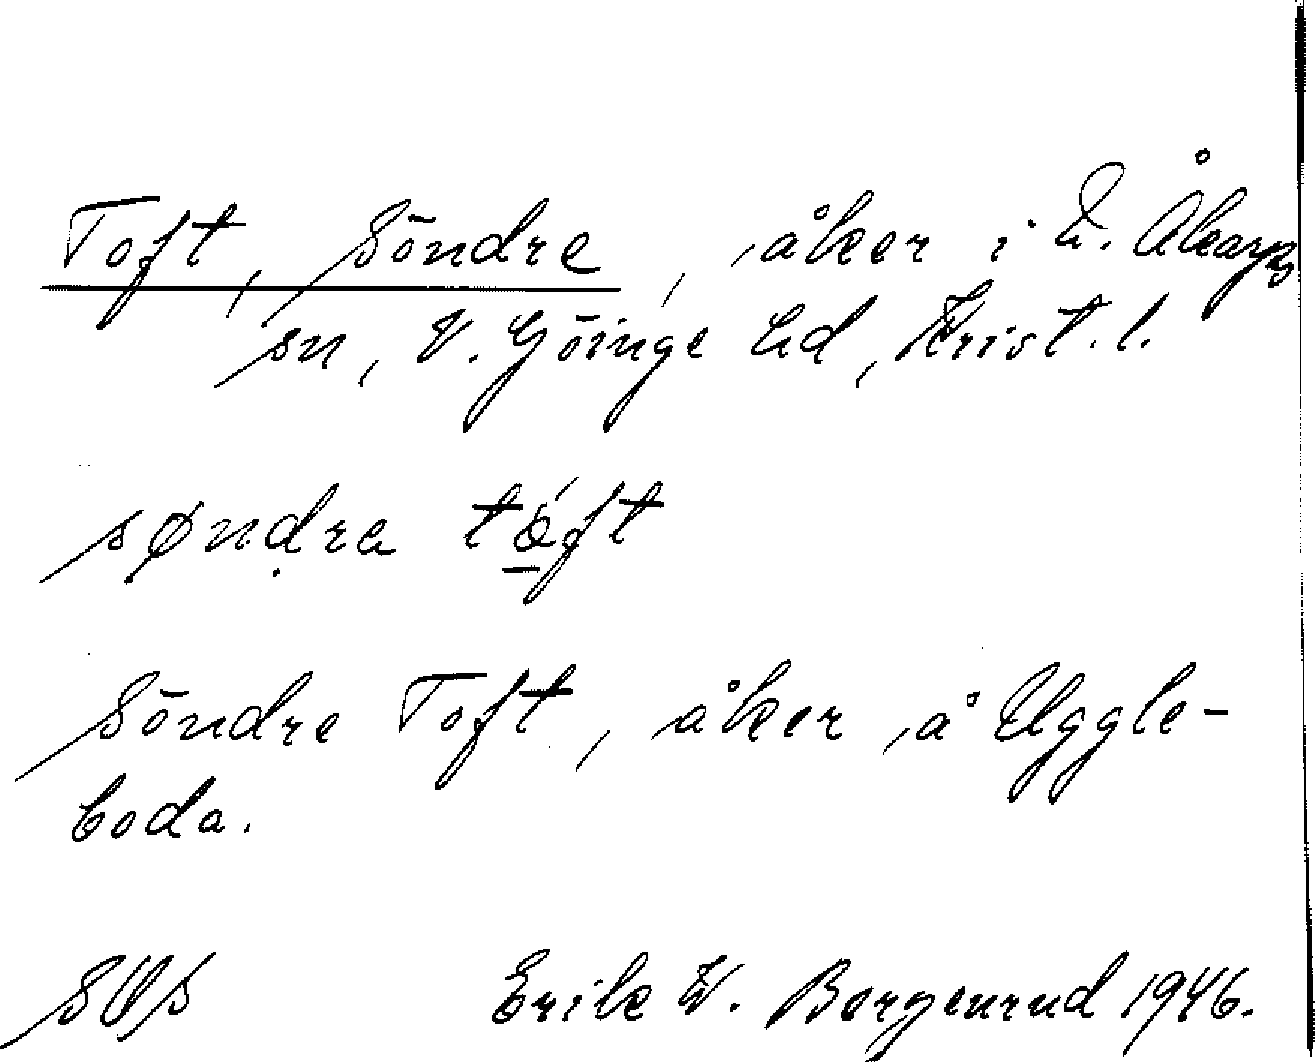 Toft, Söndre, åker i N. Åkarps
sn, V. Göinge hd, Krist. l.
søṇdra tó̲ft
Söndre Toft, åker å Uggle-
boda.
SOS Erik W. Borgenrud 1946.